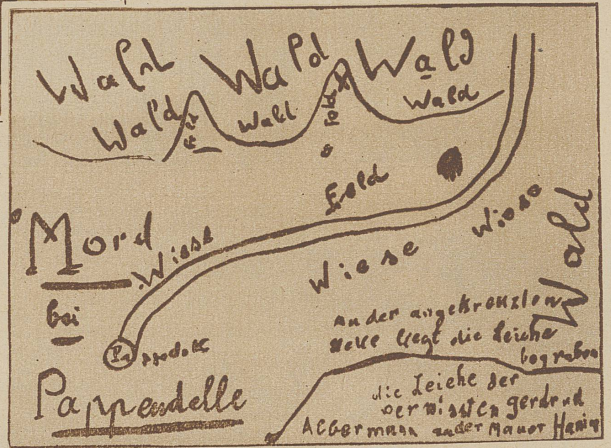 Wald Wald Wald
Wald Wald Wald
Feld
Mord
Wiese
Wiese
Wiese
Wald
bei
Pappendelle
an der angekreuzten
stelle liegt die Leiche
begraben
die Leiche der
vermissten gerdrud
Albermann an der Mauer Haniel